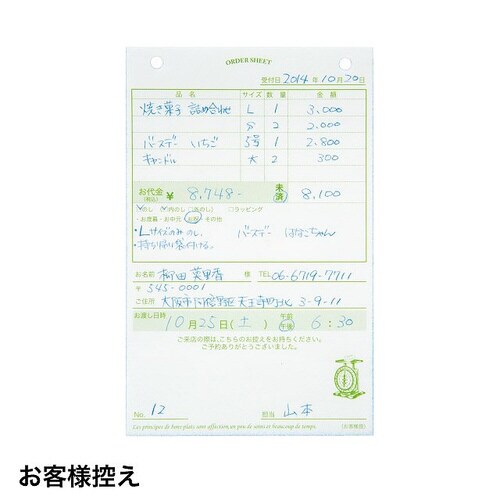 ORDER SHEET
受付日 2014年10月20日
品名 サイズ 数量 金額
焼き菓子 詰め合わせ L 1 3,000
S 2 2,000
バースデー いちご 5号 1 2,800
キャンドル 大 2 300
お代金(税込) ¥ 8,748- 未 済 8,100
のし 内のし (外のし) ラッピング
・お歳暮・お中元・お祝・その他
・Lサイズのみ のし。 バースデー はなこちゃん
・持ち帰り袋付ける。
お名前 柳田 英里香 様 TEL 06-6719-7711
〒545-0001
ご住所 大阪市阿倍野区天王寺町北 3-9-11
お渡し日時 10月25日(土) 午前 午後 6:30
ご来店の際は、こちらのお控えをお持ちください。
ご予約ありがとうございました。
No. 12 担当 山本
Les principes de bons plats sans affectation un peu de soins et beaucoup de temps.
(お客様用)
お客様控え